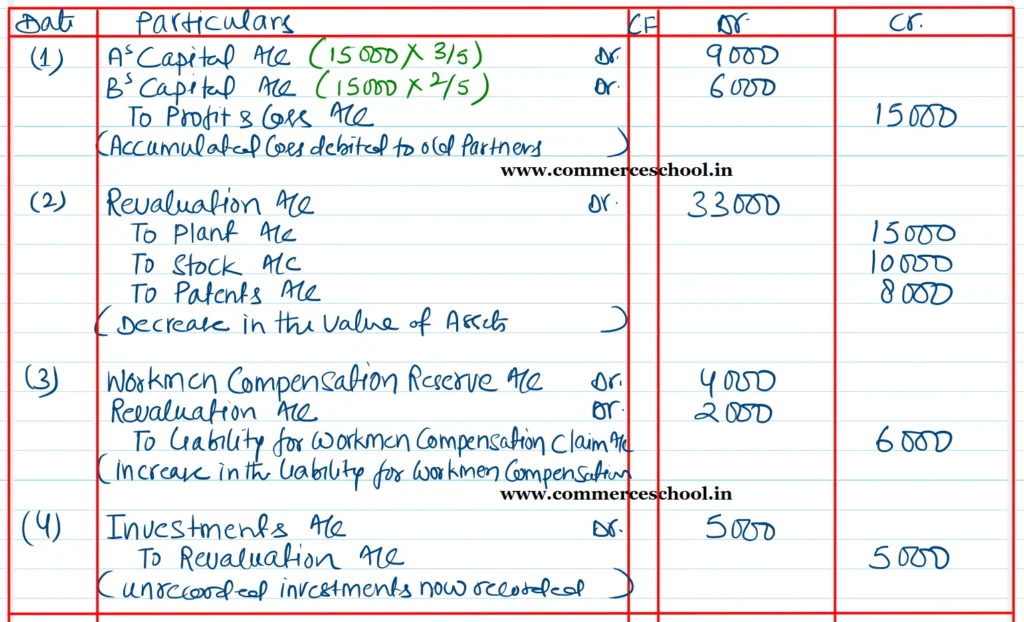 Date Particulars CF Dr. Cr.
(1) A's Capital A/c (15000 X 3/5) Dr. 9000
B's Capital A/c (15000 X 2/5) Dr. 6000
To Profit & Loss A/c 15000
(Accumulated loss debited to old Partners)
www.commerceschool.in
(2) Revaluation A/c Dr. 33000
To Plant A/c 15000
To Stock A/c 10000
To Patents A/c 8000
(Decrease in the value of Assets)
(3) Workmen Compensation Reserve A/c Dr. 4000
Revaluation A/c Dr. 2000
To Liability for Workmen Compensation Claim A/c 6000
(increase in th liability for Workmen Compensation
www.commerceschool.in
(4) Investments A/c Dr. 5000
To Revaluation A/c 5000
(unrecorded investments now recorded)